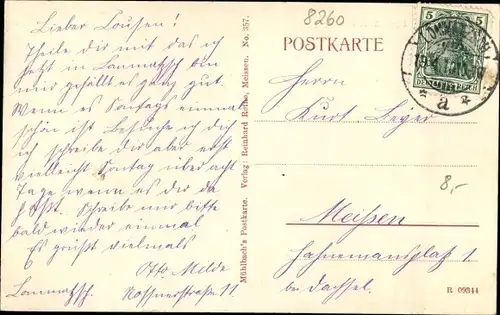 Lieber Cousen!
Theile dir mit das ich
jetzt in Lommatzsch bin
und gefällt es ganz gut.
Wenn es Sontags einmal
schön ist Besuche ich dich
ich schreibe dir aber erst
vielleicht Sontag über acht
Tage wenn es dir da
paßt. Schreibe mir bitte
bald wieder einmal
Es grüßt vielmals
Otto Milde
Lommatzsch. Rossnerstraße 11.
Mühlbach's Postkarte. Verlag: Reinhard Rothe, Meissen. No. 357.
8260
POSTKARTE
5 5
DEUTSCHES REICH
a
Herrn
Kurt Beyer
8,-
Meißen
Hahnemannsplatz 1
bei Dachsel.
R 09344